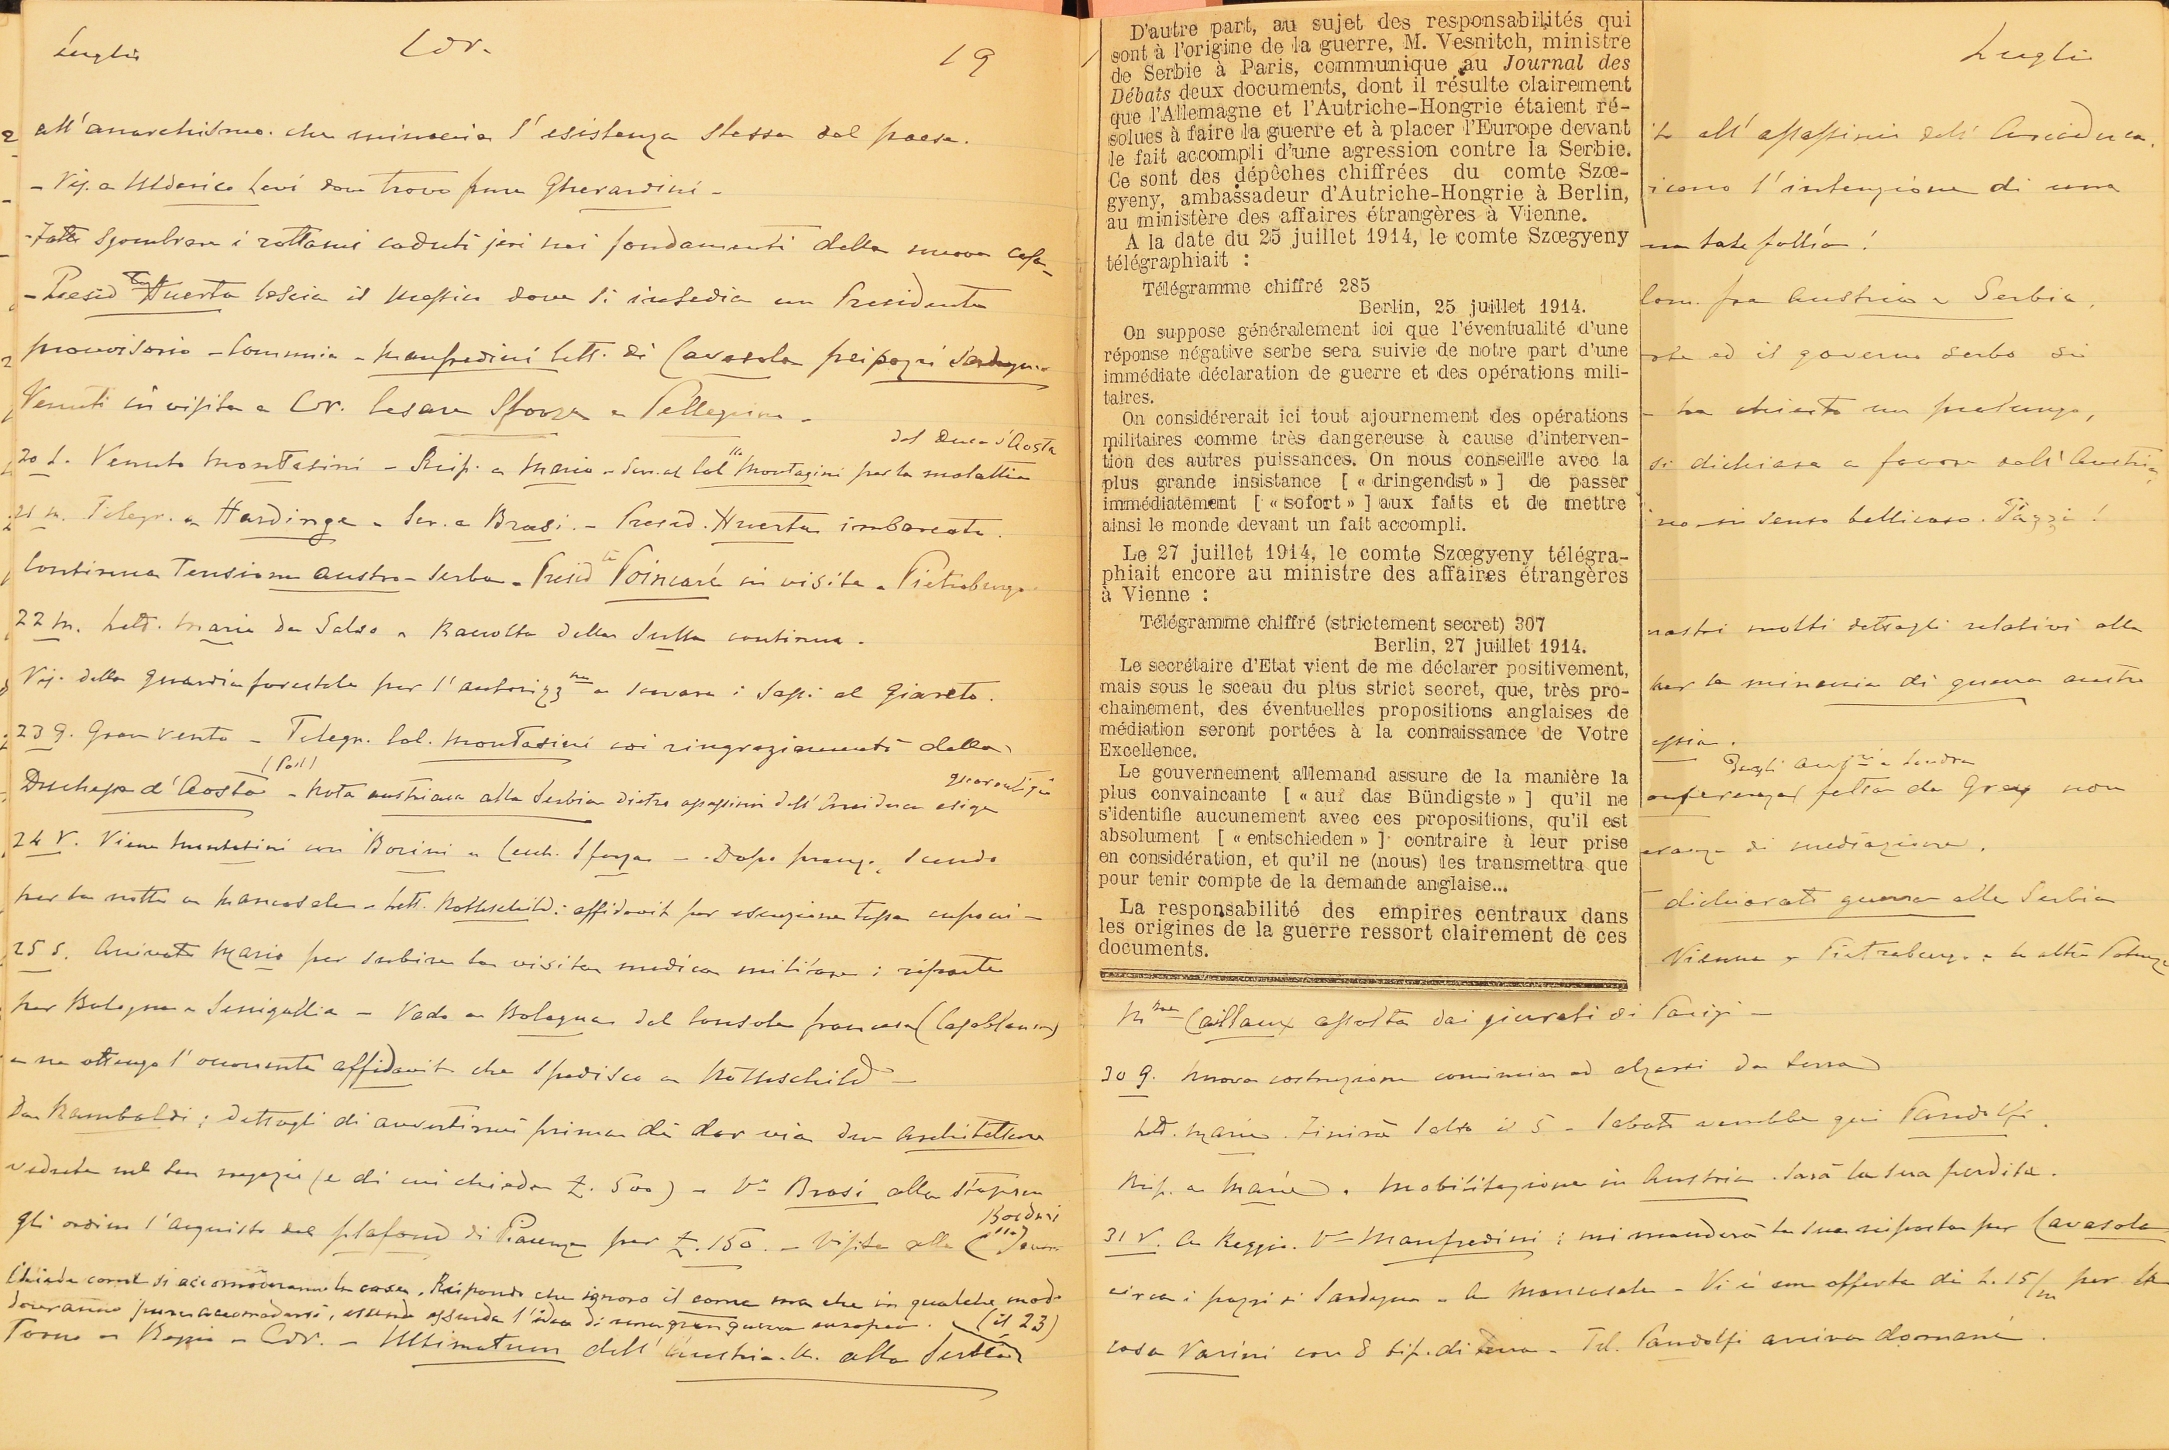 Luglio Cov. 19
all'anarchismo che minaccia l'esistenza stessa del paese.
- Vis. a Ulderico Levi dove trovo pure Gherardini -
- Fatti sgombrare i rottami caduti jeri nei fondamenti della nuova casa -
- Presid.te Huerta lascia il Messico dove si insedia un Presidente
provvisorio - Comincia - Manfredini lett. di Cavasola pei pozzi Sardegna
Venuti in visita a Cov. Cesare Sforza e Pellegrino -
del Duca d'Aosta
20 L. Venuto Montasini - Risp. a Mario - Scr. al Col.llo Montasini per la malattia
21 M. Telegr. a Hardinge - Scr. a Brasi. - Presid. Huerta imbarcato.
Continua Tensione austro-serba - Presid.te Poincaré in visita a Pietroburgo
22 M. Lett. Maria da Salso - Raccolta della Sulla continua.
Vis. della guardia forestale per l'autorizz.ne a scavare i sassi al Giareto.
23 G. Gran vento - Telegr. Col. Montasini coi ringraziamenti della
Duchessa d'Aosta - Nota austriaca alla Serbia dietro assassinio dell'Arciduca esige
guarentigie
24 V. Viene Montasini con Borini e Cesare Sforza - Dopo pranzo scendo
per la notte a Mancasale - Lett. Rothschild: affidavit per esenzione tassa cuponi -
25 S. Arrivato Mario per subire la visita medica militare: riparte
per Bologna e Senigallia - Vado a Bologna dal Console francese (Casablanca)
e ne ottengo l'occorrente affidavit che spedisco a Rothschild -
Da Rambaldi: dettagli di avvertirmi prima di dar via due architetture
vedute nel suo negozio (e di cui chiede £. 500) - V.o Brasi alla Stazione
gli ordino l'acquisto del plafond di Piacenza per £. 150. - Visita alla C.ssa
Chiede come si accomoderanno le cose. Rispondo che ignoro il come ma che in qualche modo
dovranno pure accomodarsi, essendo assurda l'idea di una gran guerra europea. (il 23)
Torno a Reggio e Cov. - Ultimatum dell'Austria-U. alla Serbia
D'autre part, au sujet des responsabilités qui
sont à l'origine de la guerre, M. Vesnitch, ministre
de Serbie à Paris, communique au Journal des
Débats deux documents, dont il résulte clairement
que l'Allemagne et l'Autriche-Hongrie étaient ré-
solues à faire la guerre et à placer l'Europe devant
le fait accompli d'une agression contre la Serbie.
Ce sont des dépêches chiffrées du comte Szœ-
gyeny, ambassadeur d'Autriche-Hongrie à Berlin,
au ministère des affaires étrangères à Vienne.
A la date du 25 juillet 1914, le comte Szœgyeny
télégraphiait :
Télégramme chiffré 285
Berlin, 25 juillet 1914.
On suppose généralement ici que l'éventualité d'une
réponse négative serbe sera suivie de notre part d'une
immédiate déclaration de guerre et des opérations mili-
taires.
On considérerait ici tout ajournement des opérations
militaires comme très dangereuse à cause d'interven-
tion des autres puissances. On nous conseille avec la
plus grande insistance [ « dringendst » ] de passer
immédiatement [ « sofort » ] aux faits et de mettre
ainsi le monde devant un fait accompli.
Le 27 juillet 1914, le comte Szœgyeny télégra-
phiait encore au ministre des affaires étrangères
à Vienne :
Télégramme chiffré (strictement secret) 307
Berlin, 27 juillet 1914.
Le secrétaire d'Etat vient de me déclarer positivement,
mais sous le sceau du plus strict secret, que, très pro-
chainement, des éventuelles propositions anglaises de
médiation seront portées à la connaissance de Votre
Excellence.
Le gouvernement allemand assure de la manière la
plus convaincante [ « auf das Bündigste » ] qu'il ne
s'identifie aucunement avec ces propositions, qu'il est
absolument [ « entschieden » ] contraire à leur prise
en considération, et qu'il ne (nous) les transmettra que
pour tenir compte de la demande anglaise...
La responsabilité des empires centraux dans
les origines de la guerre ressort clairement de ces
documents.
Luglio
all'assassinio dell'Arciduca.
l'intenzione di una
tale follia!
fra Austria e Serbia.
ed il governo serbo si
ha chiesto una prolunga,
si dichiara a favore dell'Austria,
in senso bellicoso. Pazzi!
nostri molti dettagli relativi alla
per la minaccia di guerra austro
ssia.
Degli Amb.ri a Londra
onferenza fatta da Grey non
eranza di mediazione.
dichiarato guerra alla Serbia
Vienna e Pietroburgo e le altre Potenze
M.me Caillaux assolta dai giurati di Parigi -
30 G. Nuova costruzione comincia ad alzarsi da terra
Lett. Maria. Finirà Salso il 5 - Sabato verrebbe qui Pandolfi.
Risp. a Maria. Mobilitazione in Austria. Sarà la sua perdita.
31 V. A Reggio. V.o Manfredini: mi manderà la sua risposta per Cavasola
circa i pozzi di Sardegna - A Mancasale - Vi è una offerta di L. 15/m per la
casa Varini con 8 bif. di terra - Tel. Pandolfi arriva domani.